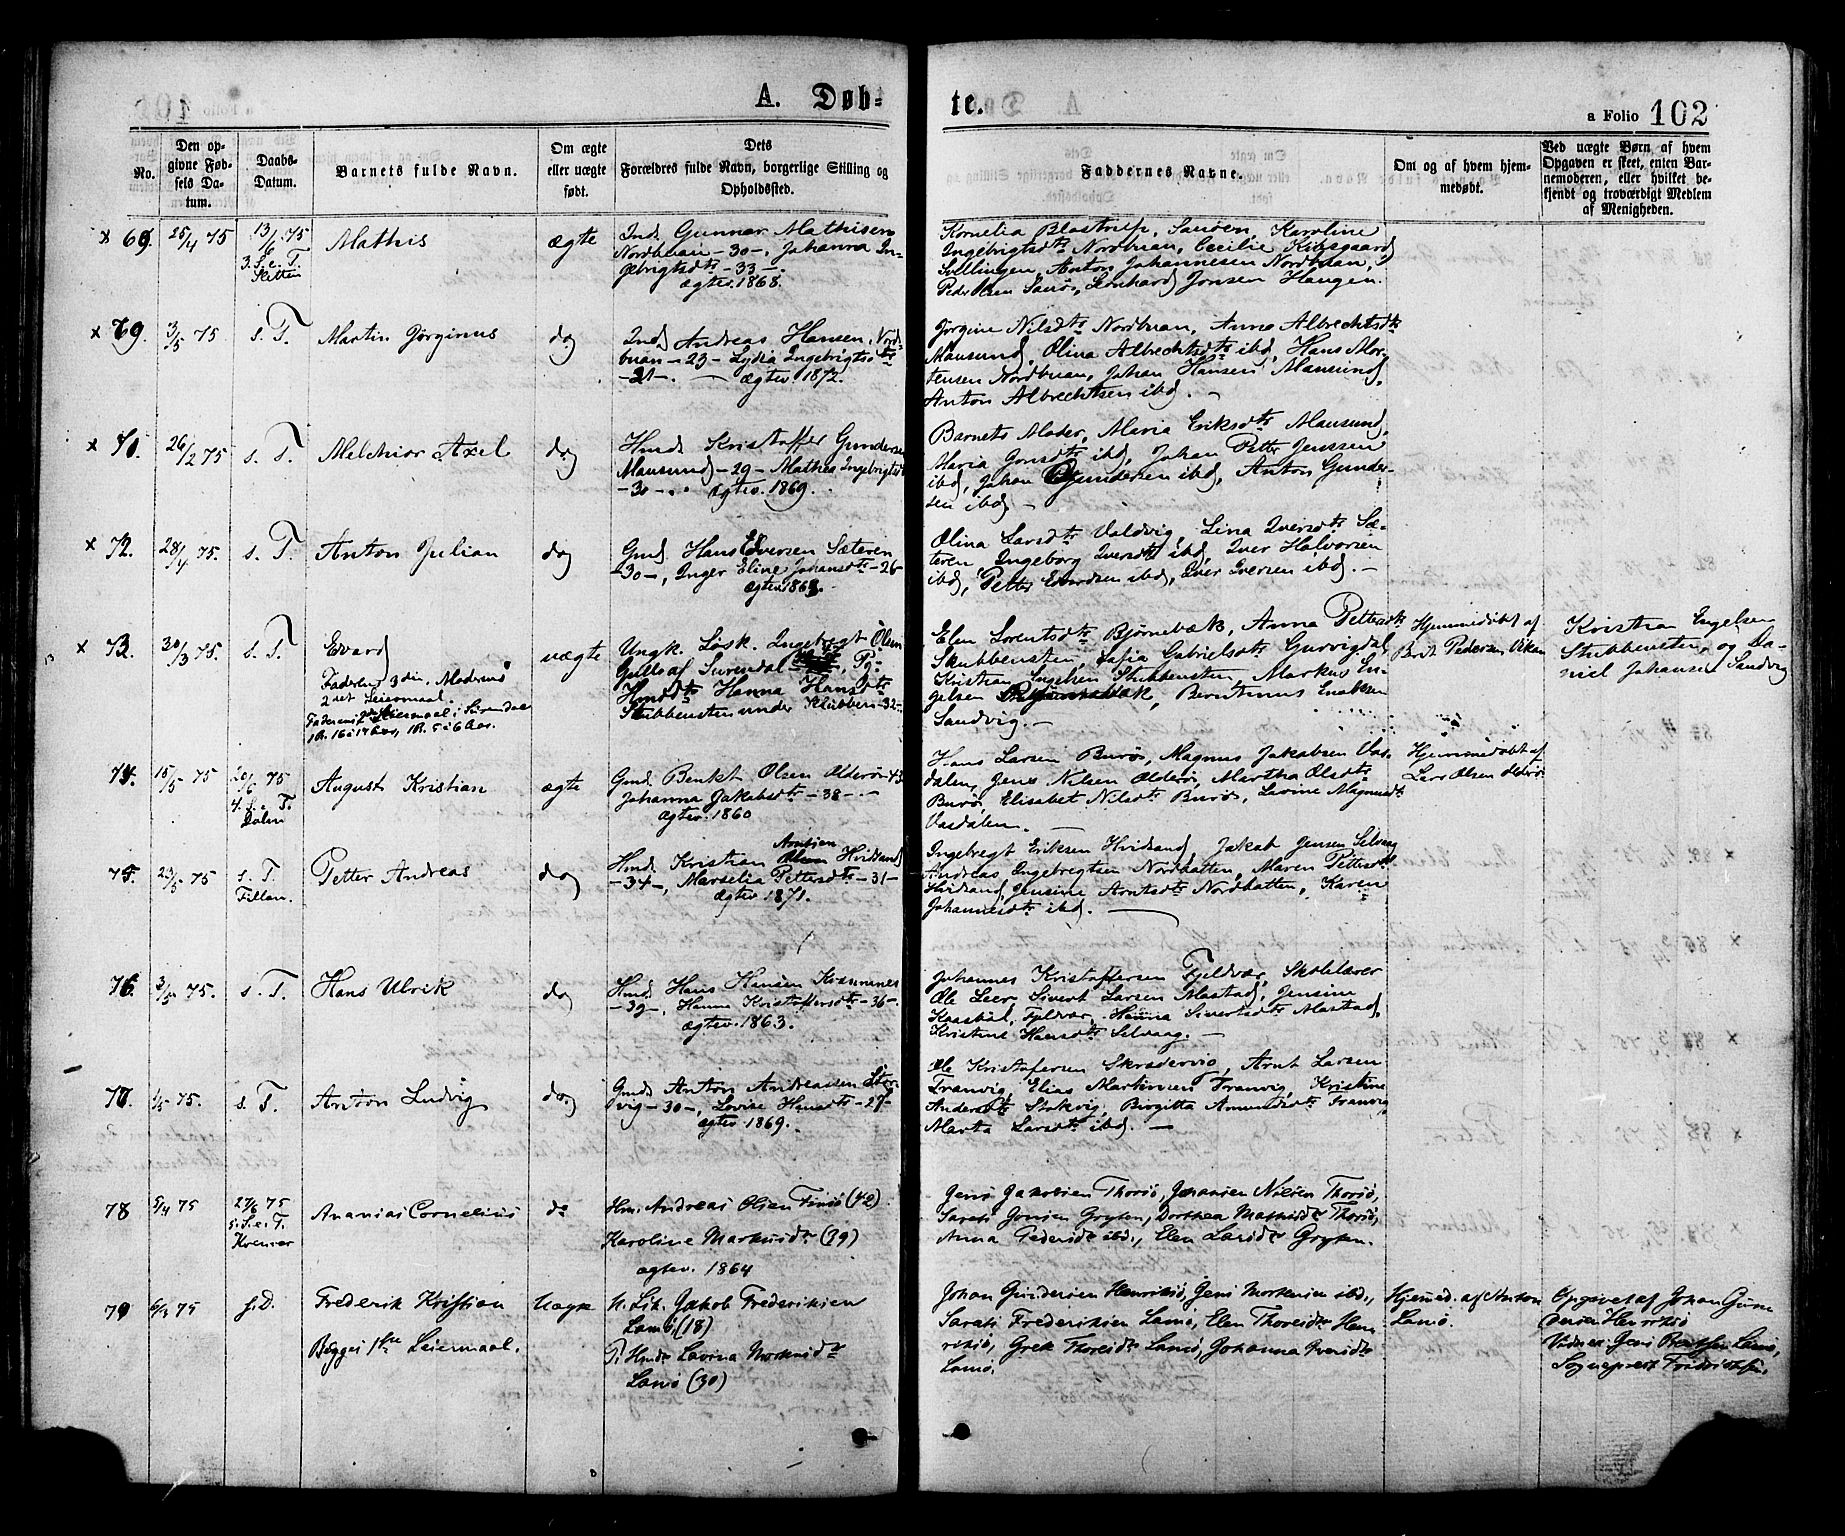 A. Døb-
te.
a Folio 102
No.
Den op-
givne Fød-
sels Da-
tum.
Daabs-
Datum.
Barnets fulde Navn.
Om ægte
eller uægte
født.
Dets
Forældres fulde Navn, borgerlige Stilling og
Opholdssted.
Faddernes Navne.
Om og af hvem hjem-
medøbt.
Ved uægte Børn af hvem
Opgaven er skeet, enten Bar-
nemoderen, eller hvilket be-
kjendt og troværdigt Medlem
af Menigheden.
x 69. 25/4 75
13/6 75
3. S. e. T.
Mathis
ægte
Ind. Gunnar Mathisen
Nordbuan -30-, Johanna In-
gebrigtsdtr -33-.
ægtev. 1868.
Kornelia Blostrup, Sauøen, Karoline
Ingebrigtsdtr Nordbuan, Cecilie
Anton Johannesen Nordbuan,
Peder Olsen Sauø, Leonhard Jonsen Haugen.
x 3/5 75
s. T.
Martin Jørginus
do
Ind. Andreas Hansen, Nord-
buan -23- Lydia Ingebrigtsdtr
-21-. — ægtev 1872.
Jørgine Nilsdtr Nordbuan, Anna Albrechtsdtr
Mausund, Olina Albrechtsdtr ibd, Hans Mor-
tensen Nordbuan, Johan Hansen Mausund,
Anton Albrechtsen ibd. -
x 71. 26/2 75
s. T.
Melchior Axel
do
Hmd. Kristoffer Gundersen
Mausund -29- Mathea Ingebrigtsd
-30-. ægtev. 1869.
Barnets Moder, Maria Eriksdtr Mausund,
Maria Jonsdtr ibd, Johan Petter Jenssen
ibd, Johan Gundersen ibd, Anton Gunder-
sen ibd -
x 72. 28/4 75.
s. T.
Anton Julian
do
Gmd. Hans Edversen Sæteren
-30-, Inger Eline Johansdtr -26-
ægtev. 1868.
Olina Larsdtr Valdvig, Lina Iversdtr Sæ-
teren, Ingeborg Iversdtr ibd, Iver Halvorsen
ibd, Petter Evardsen ibd, Iver Iversen ibd. -
x 73. 30/3 75.
s. T.
Edvard
Faderens 3die. Moderens
2net Leiermaal.
uægte
Ungk. Løsk. Ingebregt Olsen
Gulla af Surendal, Pg.
Hmdsdtr Hanna Hansdtr
Stubbensten under Klubben -32-
Elen Lorentsdtr Bjørnebæk, Anna Pettersdtr
Skubbensten, Sofia Gabrielsdtr Gurvigdal,
Kristian Engelsen Stubbensten, Markus En-
gelsen Bjørnebæk, Berntinus Enoksen
Sandvig. -
Hjemmedøbt af
Brit Pedersen, Viken
Kristian Engelsen
Stubbensten og Da-
niel Johansen Sandvig
74. 15/5 75
20/6 75
4. S. e. T.
Dolm
August Kristian
ægte
Gmd. Benkt Olsen Olderø -43-
Johanna Jakobsdtr -38-. -
ægtev. 1860
Hans Larsen Burø, Magnus Jakobsen Vas-
dalen, Jenes Nilsen Olderø, Martha Olsdtr
Burø, Elisabet Nilsdtr Burø, Lavine Magnusdtr
Vasdalen. -
Hjemmedøbt af
Lars Olsen Olderø
75. 23/5 75
s. T.
Fillan.
Petter Andreas
do
Hmd. Kristian Arntsen Hvidsand
-34-, Marselia Pettersdtr -31-
ægtev 1871.
Ingebregt Eriksen Hvidsand, Jakob Jensen Selvaag
Andreas Ingebregtsen Nordhatten, Maren Pettersdtr
Hvidsand, Jensine Arntsdtr Nordhatten, Karen
Johannesdtr ibd.
76. 3/5 75.
s. T.
Hans Ulrik
do
Hmd. Hans Hansen
-39-, Hanna Kristoffersdtr -36-.
ægtev. 1863.
Johannes Kristoffersen Fjeldvær, Skolelærer
Ole Leer, Sivert Larsen Mastad, Jensine
Kaasbøl, Fjeldvær, Hanna Sivertsdtr Mastad,
Kristine Hansdtr Selvaag. -
77. 1/5 75.
s. T.
Anton Ludvig
do
Gmd. Anton Andreassen Stor-
vig -30-, Lovise Hmdsdtr -27-
ægtev. 1869.
Ole Kristofersen Skredervig, Arnt Larsen
Tranvig, Elias Martinusen Tranvig, Kristine
Andersdtr Stokvig, Birgitta Amundsdtr Tranvig
Marta Larsdtr ibd. -
78 5/4 75
27/6 75
5. S. e. T.
Kvenvær
Ananias Cornelius
do
Hm. Andreas Olsen Finsø (42)
Karoline Markusdtr (39)
ægtev. 1864
Jens Jakobsen Thorsø, Johansen Nilsen Thorsø,
Sarati Jonsen Gryten, Dorthea Mathisdtr Thorsø,
Anna Pedersdtr ibd., Elen Larsdtr Gryten.
79 6/4 75
s. D.
Frederik Kristian
Begges 1ste Leiermaal.
Uægte
U. Lsk. Jakob Frederiksen
Lamø (18)
P. Hmds Lavina Morkusdtr
Lamø (30)
Johan Gundersen Henriksø, Jens Morkusen ibd.,
Sarati Frederiksen Lamø, Elen Thoresdtr Hen
riksø, Grete Thoresdtr Lamø, Johanna Iversdtr
Lamø.
Hjemmed. af Anton
Lamø.
Opgivet af Johan Gun
dersen Henriksø
Vidner: Jens Bentsen Lamø,
Sogneprest Fredrichsen.